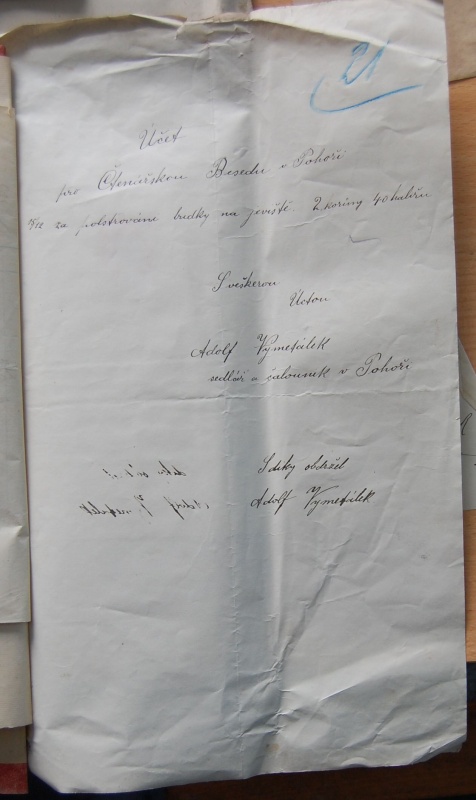 21
Účet
pro Čtenářskou Besedu v Pohoři
za polstrování budky na jeviště. 2 koruny 40 halířů
S veškerou
Úctou
Adolf Vymetálek
sedlář a čalouník v Pohoři
S díky obdržel
Adolf Vymetálek